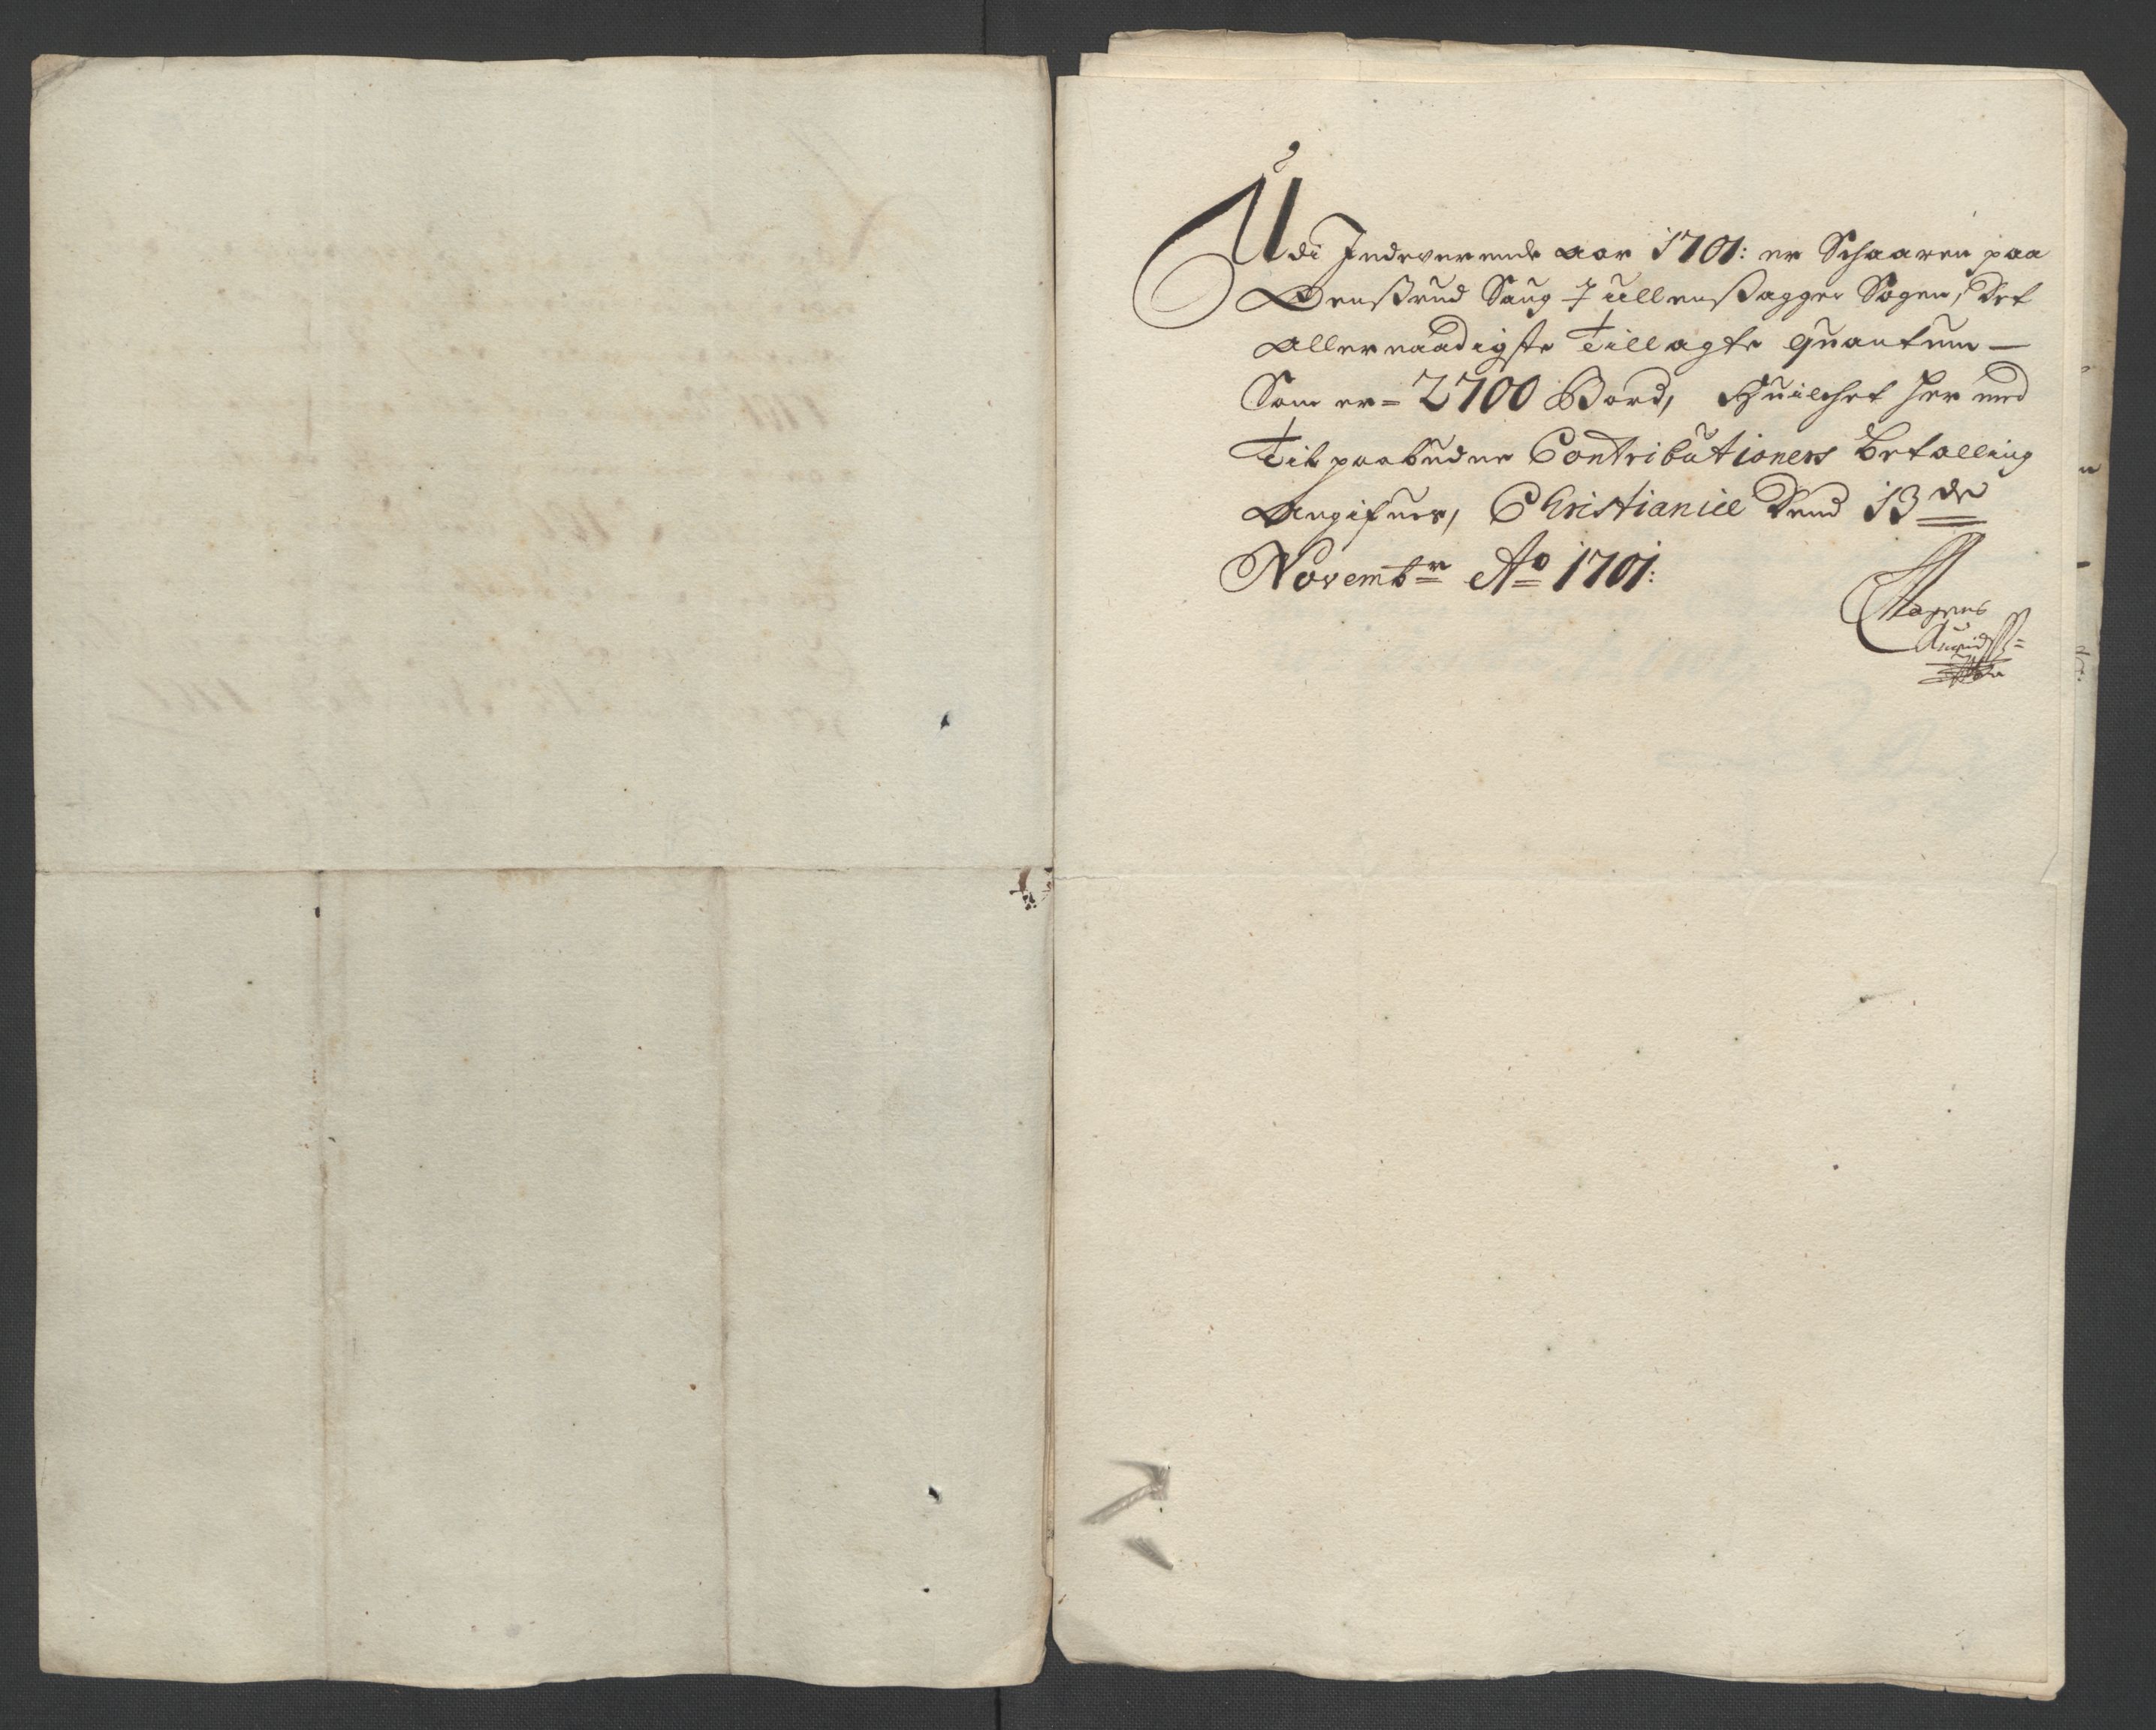 Udi Indeverende aar 1701: er Schaaren paa
Saug J Ullensagger Sogen, Det
allernaadigste Tillagte quantum —
Som er = 2700 Bord, Huilchet her med
Til paabudne Contributioners betalling
Angifues, Christianiæ Dend 13de
Novembr Ao 1701:
Magnus